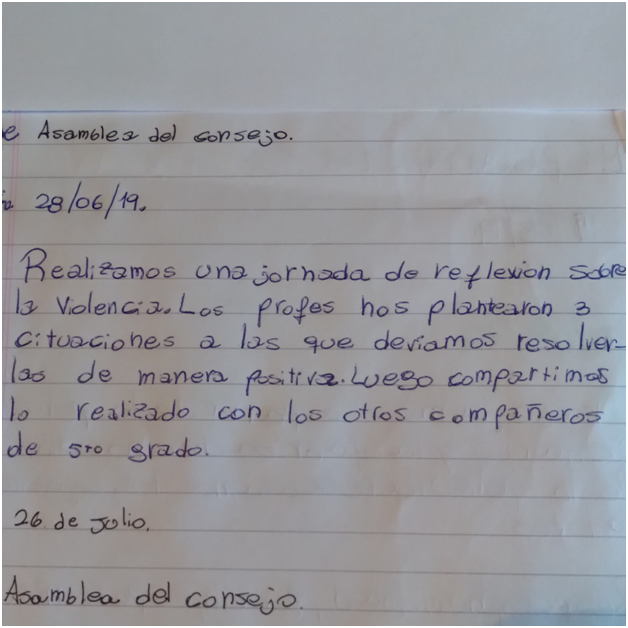 e Asamblea del consejo.
28/06/19.
Realizamos una jornada de reflexion sobre
la violencia. Los profes nos plantearon 3
cituaciones a las que deviamos resolver-
las de manera positiva. Luego compartimos
lo realizado con los otros compañeros
de 5to grado.
26 de Julio.
Asamblea del consejo.